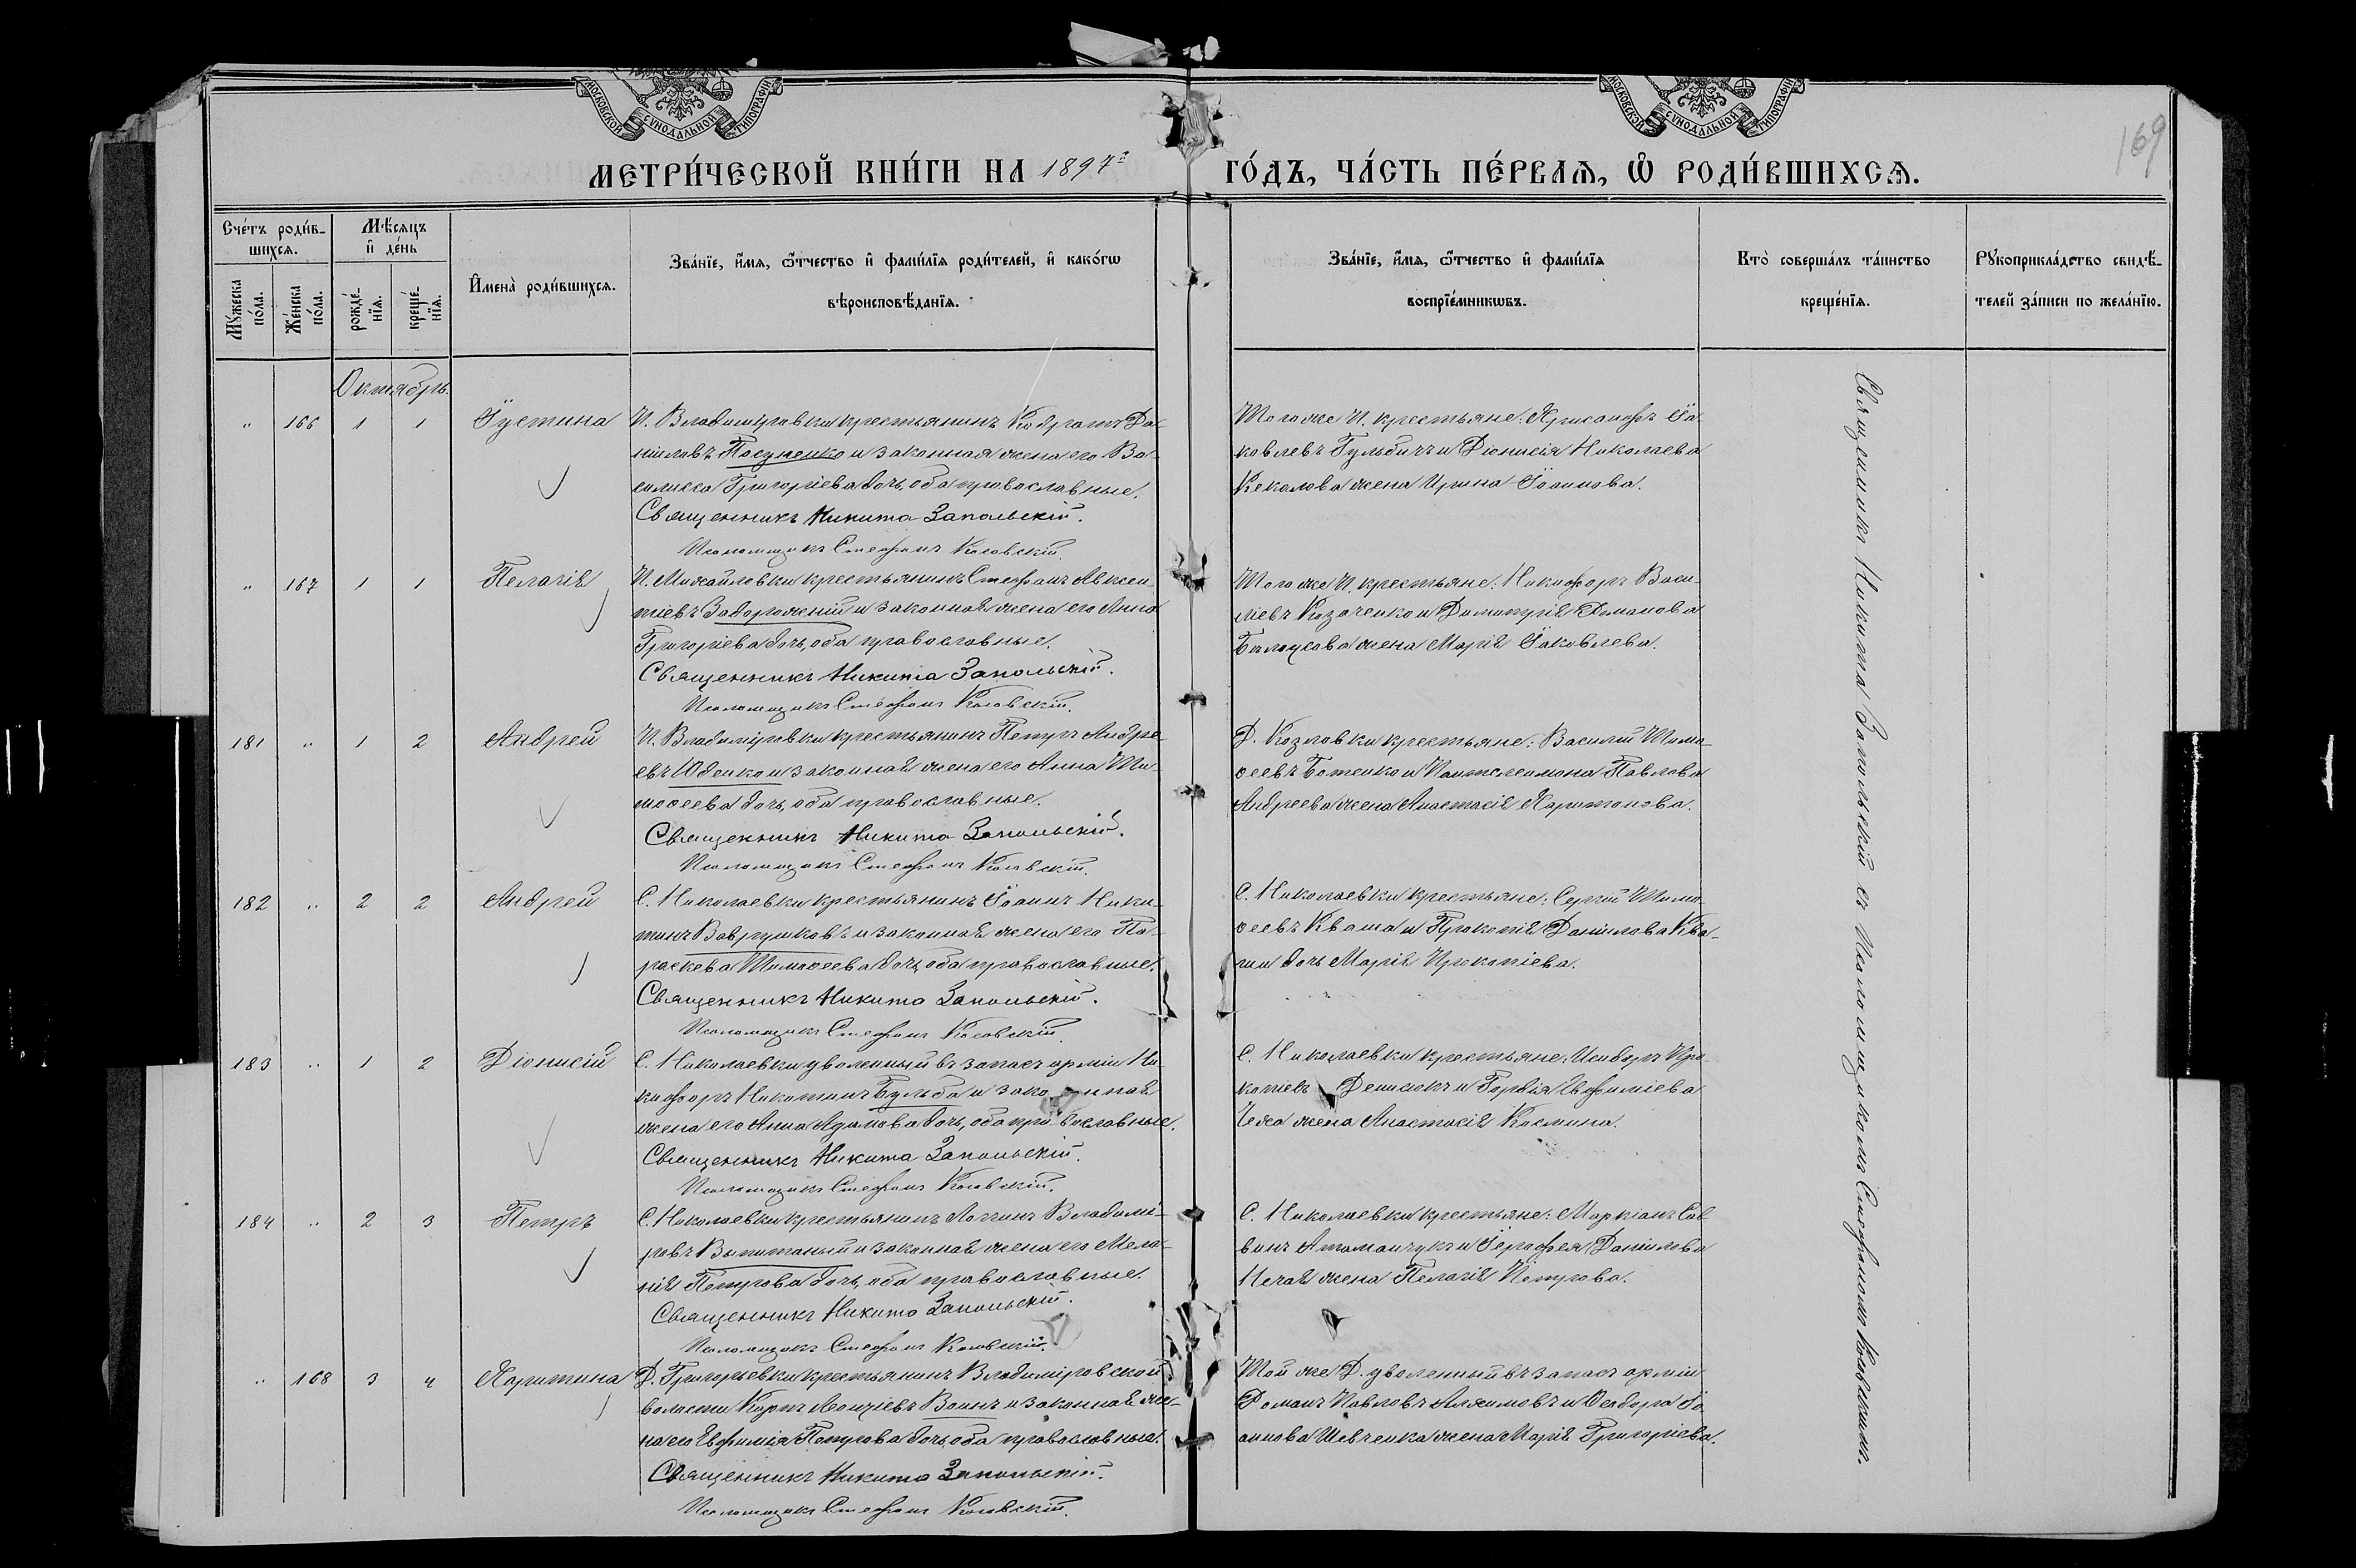 МОСКОВСКОЙ СУНОДАЛЬНОЙ ТИПОГРАФІИ
МОСКОВСКОЙ СУНОДАЛЬНОЙ ТИПОГРАФІИ
169
МЕТРИ́ЧЕСКОЙ КНИ́ГИ НА 1897 ГО́ДЪ, ЧА́СТЬ ПЕ́РВАѦ, Ѡ҆ РОДИ́ВШИХСѦ.
Сче́тъ роди́в-
шихсѧ.
Мѣ́сѧцъ
и҆ де́нь
Мꙋ́жеска
по́ла.
Же́нска
по́ла.
рожде́-
нїѧ.
креще́-
нїѧ.
И҆мена̀ роди́вшихсѧ.
Зва́нїе, и҆́мѧ, ѻ҆́тчество и҆ фами́лїѧ роди́телей, и҆ како́гѡ
вѣроисповѣ́данїѧ.
Зва́нїе, и҆́мѧ, ѻ҆́тчество и҆ фами́лїѧ
воспрїе́мникѡвъ.
Кто̀ соверша́лъ та́инство
креще́нїѧ.
Рꙋкоприкла́дство свидѣ́-
телей за́писи по жела́нїю.
Октябрь.
" 166 1 1 Іустина
П. Владиміровки крестьянинъ Кодратъ Да-
ніиловъ Пасупенко и законная жена его Ва-
силисса Григоріева дочь, оба православные.
Священникъ Никита Запольскій.
Псаломщикъ Стефанъ Косовскій.
Того же П. крестьяне: Хрисанфъ Іа-
ковлевъ Гульбичъ и Діонисія Николаева
Кекалова жена Ирина Іоаннова.
" 167 1 1 Пелагія
П. Михайловки крестьянинъ Стефанъ Авксен-
тіевъ Задорожній и законная жена его Анна
Григоріева дочь, оба православные.
Священникъ Никита Запольскій.
Псаломщикъ Стефанъ Косовскій.
Того же П. крестьяне: Никифоръ Васи-
ліевъ Козаченко и Димитрія Романова
жена Марія Іаковлева.
181 " 1 2 Андрей
П. Владиміровки крестьянинъ Петръ Андре-
евъ Юденко и законная жена его Анна Ти-
моѳеева дочь, оба православные.
Священникъ Никита Запольскій.
Псаломщикъ Стефанъ Косовскій.
Д. Козловки крестьяне: Василій Тимо-
ѳеевъ Ботенко и Пантелеимона Павлова
Андреева жена Анастасія Харитонова.
182 " 2 2 Андрей
С. Николаевки крестьянинъ Іоаннъ Ники-
тинъ Маврушковъ и законная жена его Па-
раскева Тимоѳеева дочь, оба православные.
Священникъ Никита Запольскій.
Псаломщикъ Стефанъ Косовскій.
С. Николаевки крестьяне: Сергій Тимо-
ѳеевъ Кваша и Прокопія Даніилова Ква-
ши дочь Марія Прокопіева.
183 " 1 2 Діонисій
С. Николаевки уволенный въ запасъ арміи Ни-
кифоръ Никитинъ Бульба и законная
жена его Анна Адамова дочь, оба православные.
Священникъ Никита Запольскій.
Псаломщикъ Стефанъ Косовскій.
С. Николаевки крестьяне: Исидоръ Про-
копіевъ Денисюкъ и Гордія Евфиміева
жена Анастасія Космина.
184 " 2 3 Петръ
С. Николаевки крестьянинъ Логгинъ Владимі-
ровъ и законная жена его Мела-
нія Петрова дочь, оба православные.
Священникъ Никита Запольскій.
Псаломщикъ Стефанъ Косовскій.
С. Николаевки крестьяне: Маркіанъ Сав-
винъ Атаманчукъ и Іерофея Даніилова
Нечая жена Пелагія Петрова.
" 168 3 4 Харитина
Д. Григорьевки крестьянинъ Владиміровской
волости Карпъ Леонтіевъ Воинъ и законная же-
на его Евфимія Петрова дочь, оба православные.
Священникъ Никита Запольскій.
Псаломщикъ Стефанъ Косовскій.
Той же Д. уволенный въ запасъ арміи
Романъ Павловъ и Ѳеодора Іо-
аннова Шевченка жена Марія Григоріева.
Священникъ Никита Запольскій съ Псаломщикомъ Стефаномъ Косовскимъ.